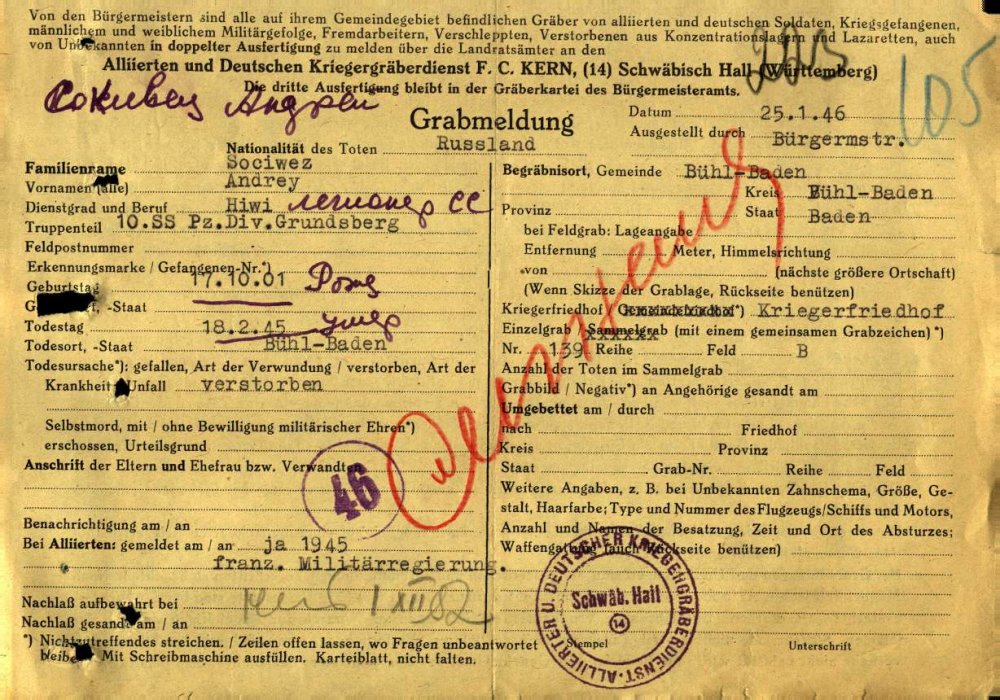 Von den Bürgermeistern sind alle auf ihrem Gemeindegebiet befindlichen Gräber von alliierten und deutschen Soldaten, Kriegsgefangenen,
männlichem und weiblichem Militärgefolge, Fremdarbeitern, Verschleppten, Verstorbenen aus Konzentrationslagern und Lazaretten, auch
von Unbekannten in doppelter Ausfertigung zu melden über die Landratsämter an den
Alliierten und Deutschen Kriegergräberdienst F. C. KERN, (14) Schwäbisch Hall (Württemberg)
Die dritte Ausfertigung bleibt in der Gräberkartei des Bürgermeisteramts.
105
Сокивец Андрей
Grabmeldung
Datum 25.1.46
Ausgestellt durch Bürgermstr.
Nationalität des Toten Russland
Familienname Sociwez
Vornamen (alle) Andrey
Dienstgrad und Beruf Hiwi легионер СС
Truppenteil 10.SS Pz.Div.Grundsberg
Feldpostnummer
Erkennungsmarke / Gefangenen-Nr.*)
Geburtstag 17.10.01
-Staat
Todestag 18.2.45 умер
Todesort, -Staat Bühl-Baden
Todesursache*): gefallen, Art der Verwundung / verstorben, Art der
Krankheit Unfall verstorben
Selbstmord, mit / ohne Bewilligung militärischer Ehren*)
erschossen, Urteilsgrund
Anschrift der Eltern und Ehefrau bzw. Verwandten
46
Benachrichtigung am / an
Bei Alliierten: gemeldet am / an ja 1945
franz. Militärregierung.
Nachlaß aufbewahrt bei
Nachlaß gesandt am / an
*) Nichtzutreffendes streichen. / Zeilen offen lassen, wo Fragen unbeantwortet
bleiben Mit Schreibmaschine ausfüllen. Karteiblatt, nicht falten.
Begräbnisort, Gemeinde Bühl-Baden
Kreis Bühl-Baden
Provinz Staat Baden
bei Feldgrab: Lageangabe
Entfernung Meter, Himmelsrichtung
von (nächste größere Ortschaft)
(Wenn Skizze der Grablage, Rückseite benützen)
Kriegerfriedhof Gemeindefriedhof*) Kriegerfriedhof
Einzelgrab Sammelgrab (mit einem gemeinsamen Grabzeichen) *)
Nr. 139 Reihe Feld B
Anzahl der Toten im Sammelgrab
Grabbild / Negativ*) an Angehörige gesandt am
Umgebettet am / durch
nach Friedhof
Kreis Provinz
Staat Grab-Nr. Reihe Feld
Weitere Angaben, z. B. bei Unbekannten Zahnschema, Größe, Ge-
stalt, Haarfarbe; Type und Nummer des Flugzeugs/Schiffs und Motors,
Anzahl und Namen der Besatzung, Zeit und Ort des Absturzes;
Waffengattung (auch Rückseite benützen)
ALLIIERTER U. DEUTSCHER KRIEGERGRÄBERDIENST
Schwäb. Hall
14
Stempel Unterschrift